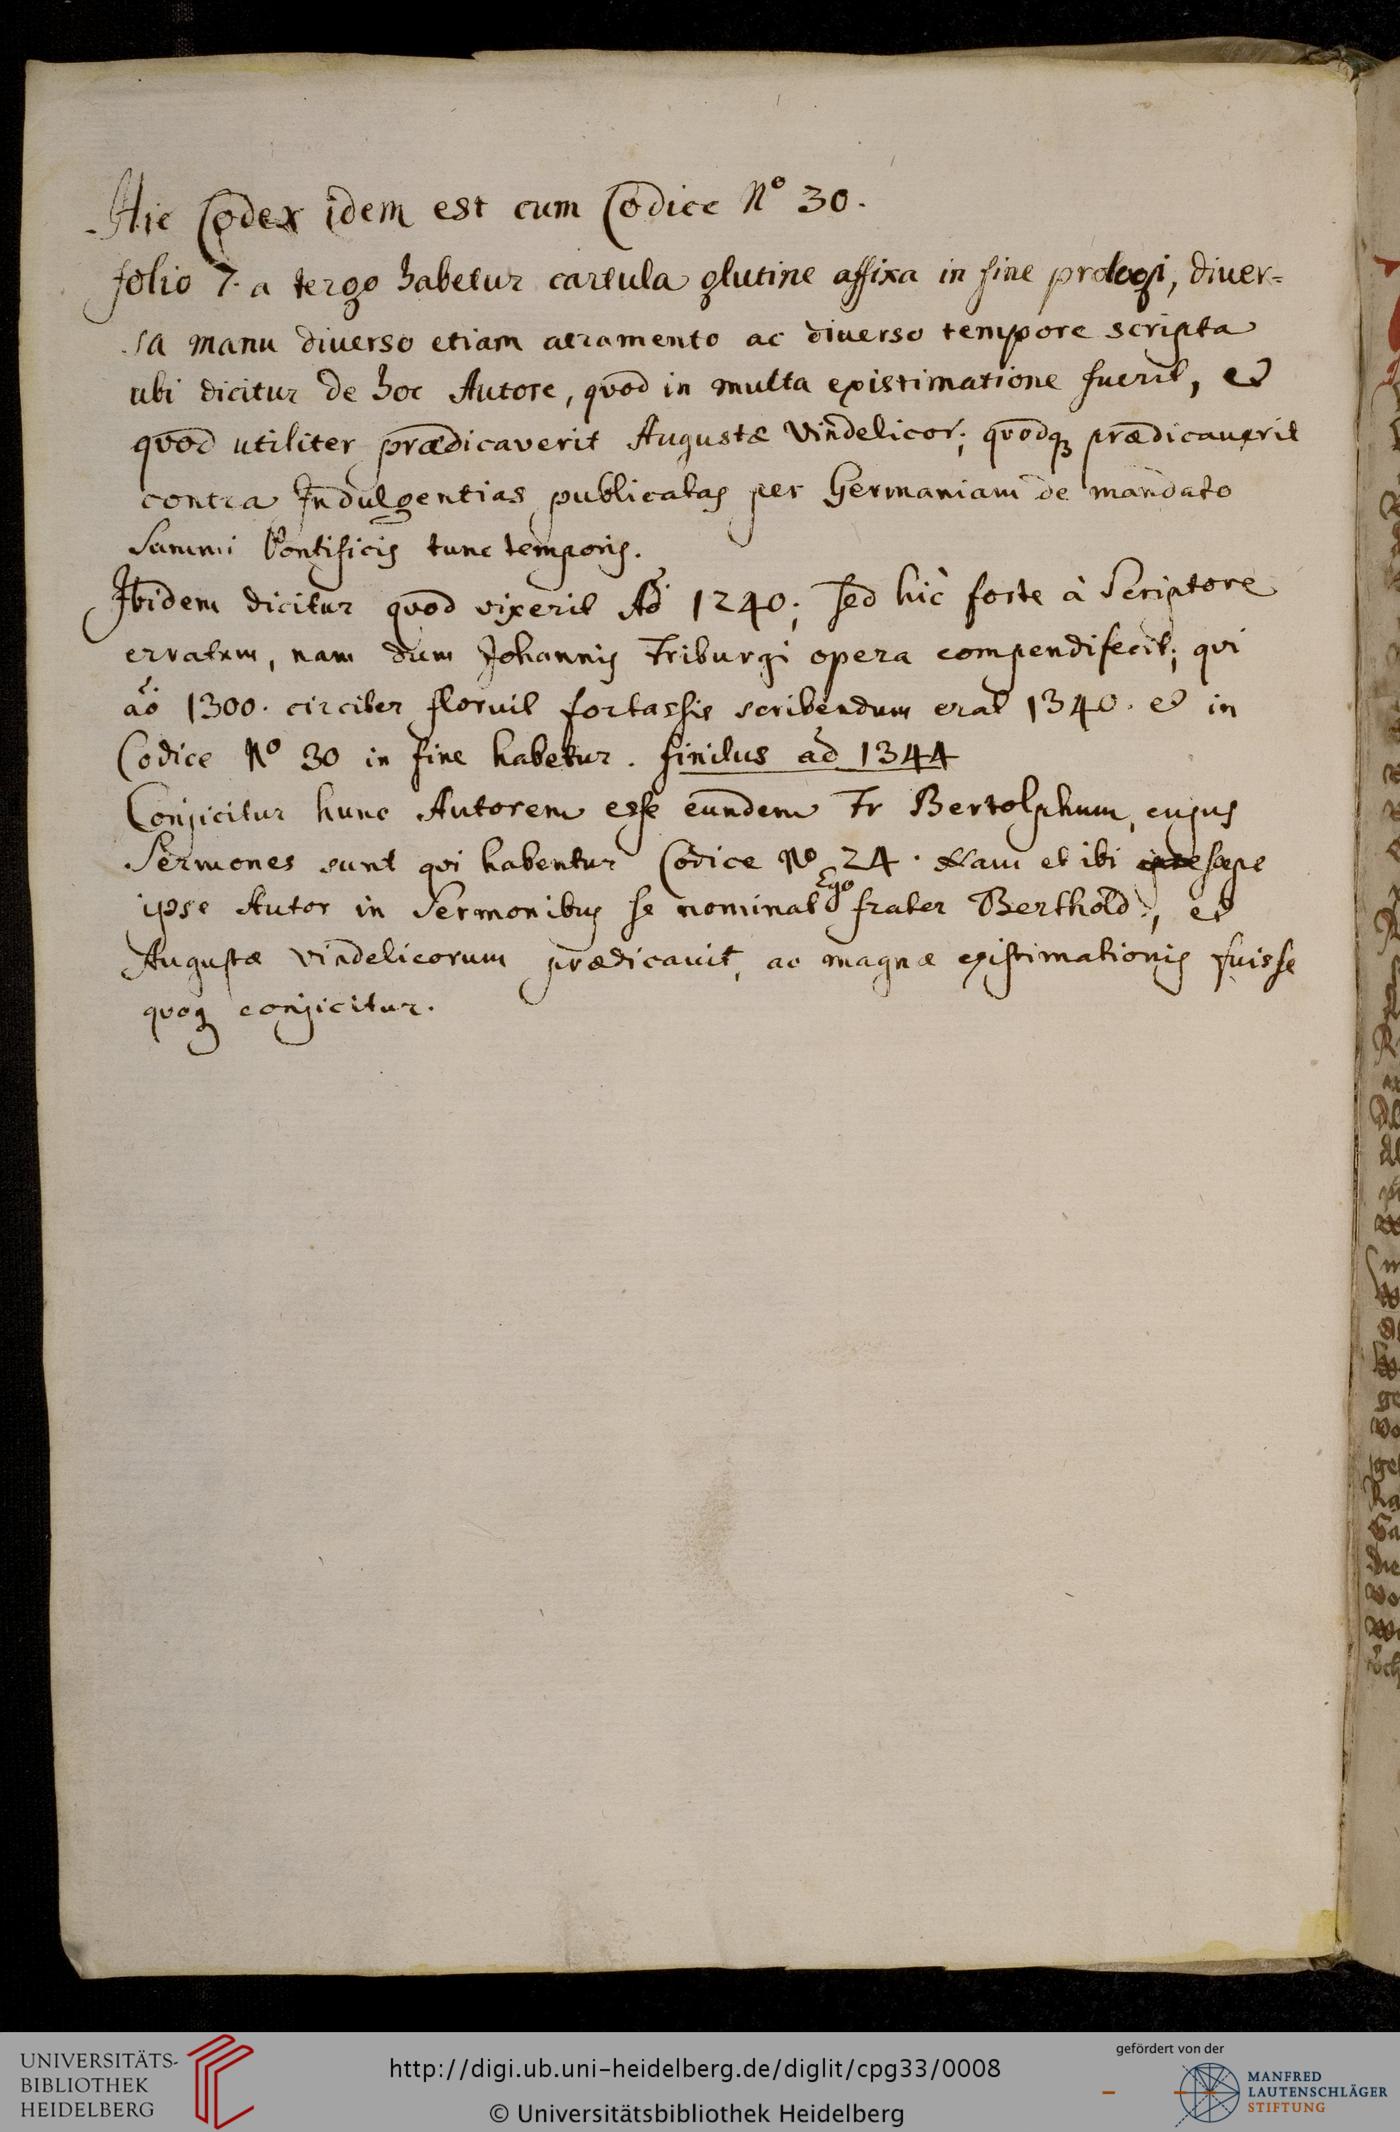 Hic Codex idem est cum Codice No 30.
folio 7. a tergo habetur cartula glutine affixa in fine prologi, diver=
sa manu diverso etiam atramento ac diverso tempore scripta
ubi dicitur de hoc Autore, quod in multa existimatione fuerit, et
quod utiliter prædicaverit Augustæ Vindelicor; quodq prædicauerit
contra Indulgentias publicatas per Germaniam de mandato
Summi Pontificis tunc temporis.
Ibidem dicitur quod vixerit Ao 1240; sed hic forte à Scriptore
erratum, nam dum Johannis Friburgi opera compendifecit; qui
ao 1300. circiter floruit fortassis scribendum erat 1340. et in
Codice No 30 in fine habetur. finitus ao 1344
Conjicitur hunc Autorem esse eundem Fr Bertolphum, cujus
Sermones sunt qui habentur Codice No 24. Nam et ibi sæpe
ipse Autor in Sermonibus se nominat Ego frater Berthold, et
Augustæ vindelicorum prædicavit, ac magnæ existimationis fuisse
quoq conjicitur.
UNIVERSITÄTS-
BIBLIOTHEK
HEIDELBERG
http://digi.ub.uni-heidelberg.de/diglit/cpg33/0008
© Universitätsbibliothek Heidelberg
gefördert von der
MANFRED
LAUTENSCHLÄGER
STIFTUNG